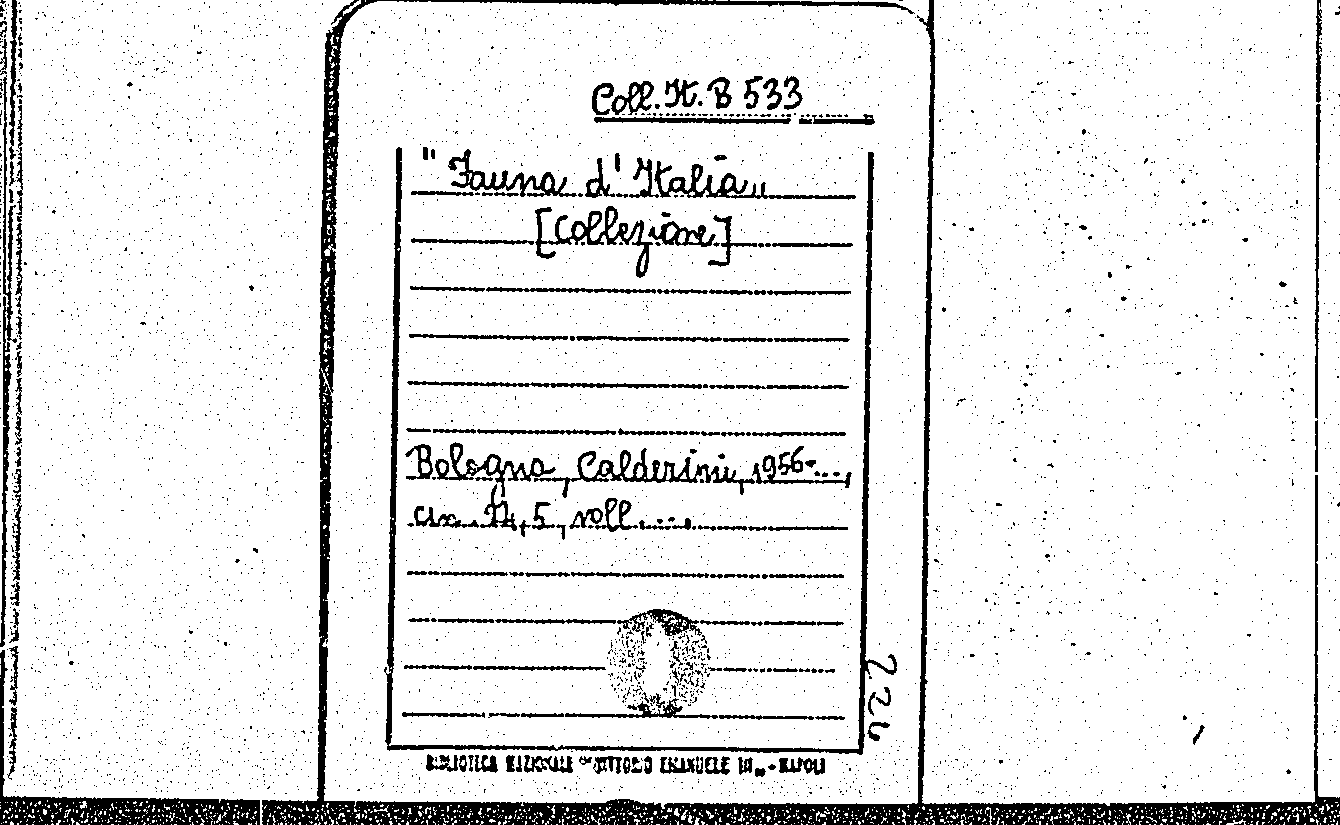 Coll. It. B 533
"Fauna d'Italia„
[Collezione]
Bologna, Calderini, 1956-...,
cm. 24,5, voll. ....
226
BIBLIOTECA NAZIONALE "VITTORIO EMANUELE III" - NAPOLI